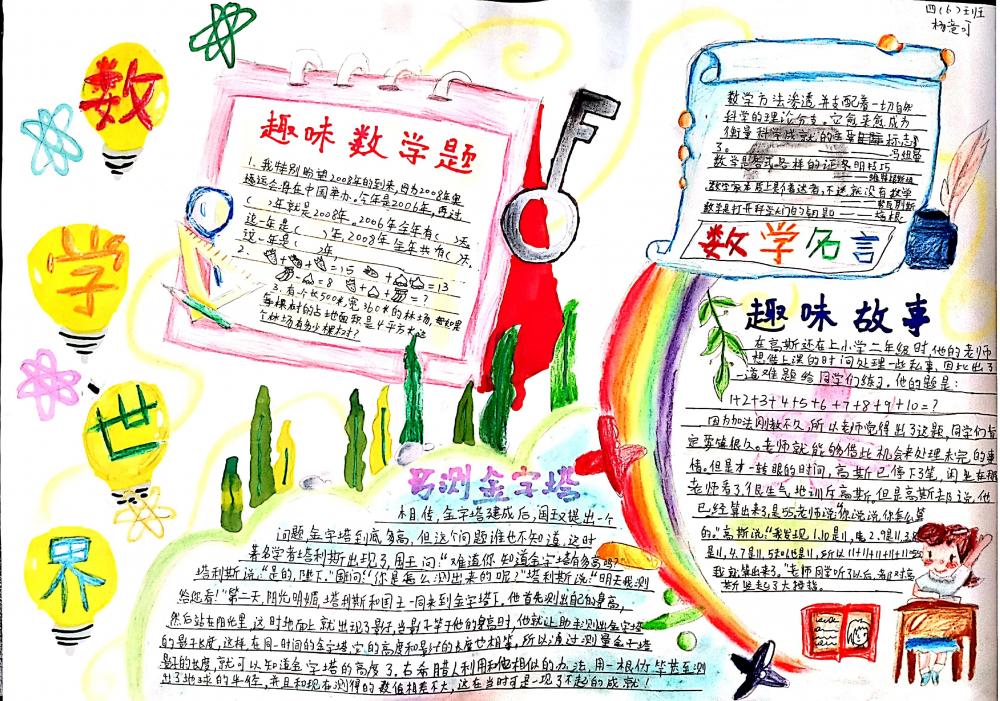 四(6)班
杨意可
数
学
世
界
趣味数学题
1、我特别盼望2008年的到来,因为2008年奥
运会将在中国举办。今年是2006年,再过
( )年就是2008年。2006年全年有( )天,
这一年是( )年,2008年全年共有( )天,
这一年是( )年。
2、 + + =15 + =13
- =8 + + =?
3、有一个长500米,宽360米的林场,
每棵树的占地面积是4平方米,这
个林场有多少棵树?
数学方法渗透并支配着一切自然
科学的理论分支。它愈来愈成为
衡量科学成就的主要标志
了。 ——冯纽曼
数学是各式各样的证明技巧
——维特根斯坦
数学是打开科学大门的钥匙 ——培根
数学名言
趣味故事
在高斯还在上小学二年级时,他的老师
想借上课的时间处理一些私事,因此出了
一道难题给同学们练习。他的题是:
1+2+3+4+5+6+7+8+9+10=?
因为加法刚教不久,所以老师觉得出了这题,同学们肯
定要算很久。老师就能够借此机会来处理未完的事
情。但是才一转眼的时间,高斯已停下了笔,闲坐在那
老师看了很生气地训斥高斯,但是高斯却说他
已经算出来了,是55,老师说:“你说说你怎么算
的。”高斯说:“我发现1、10是11,
是11,4、7是11,5和6也是11,所以11+11+11+11+11=55,
我就算出来了。”老师同学听了以后,都对高
斯竖起了大拇指。
巧测金字塔
相传,金字塔建成后,国王提出一个
问题,金字塔到底多高,但这个问题谁也不知道,这时
著名学者塔利斯出现了,国王问:“难道你知道金字塔有多高吗?”
塔利斯说:“是的,陛下。”国王问:“你是怎么测出来的呢?”塔利斯说:“明天我测
给您看!”第二天,阳光明媚,塔利斯和国王一同来到金字塔下,他首先测出自己的身高,
然后站在阳光里,这时地面上就出现了影子,当影子等于他的身高时,他就让助手测出金字塔
的影子长度,这样,在同一时间的金字塔,它的高度和影子的长度也相等,所以通过测量金字塔
影子的长度,就可以知道金字塔的高度了。古希腊人利用和他相似的办法,用一根竹竿甚至测
出了地球的半径,并且和现在测得的数值相差不大,这在当时可是一项了不起的成就!